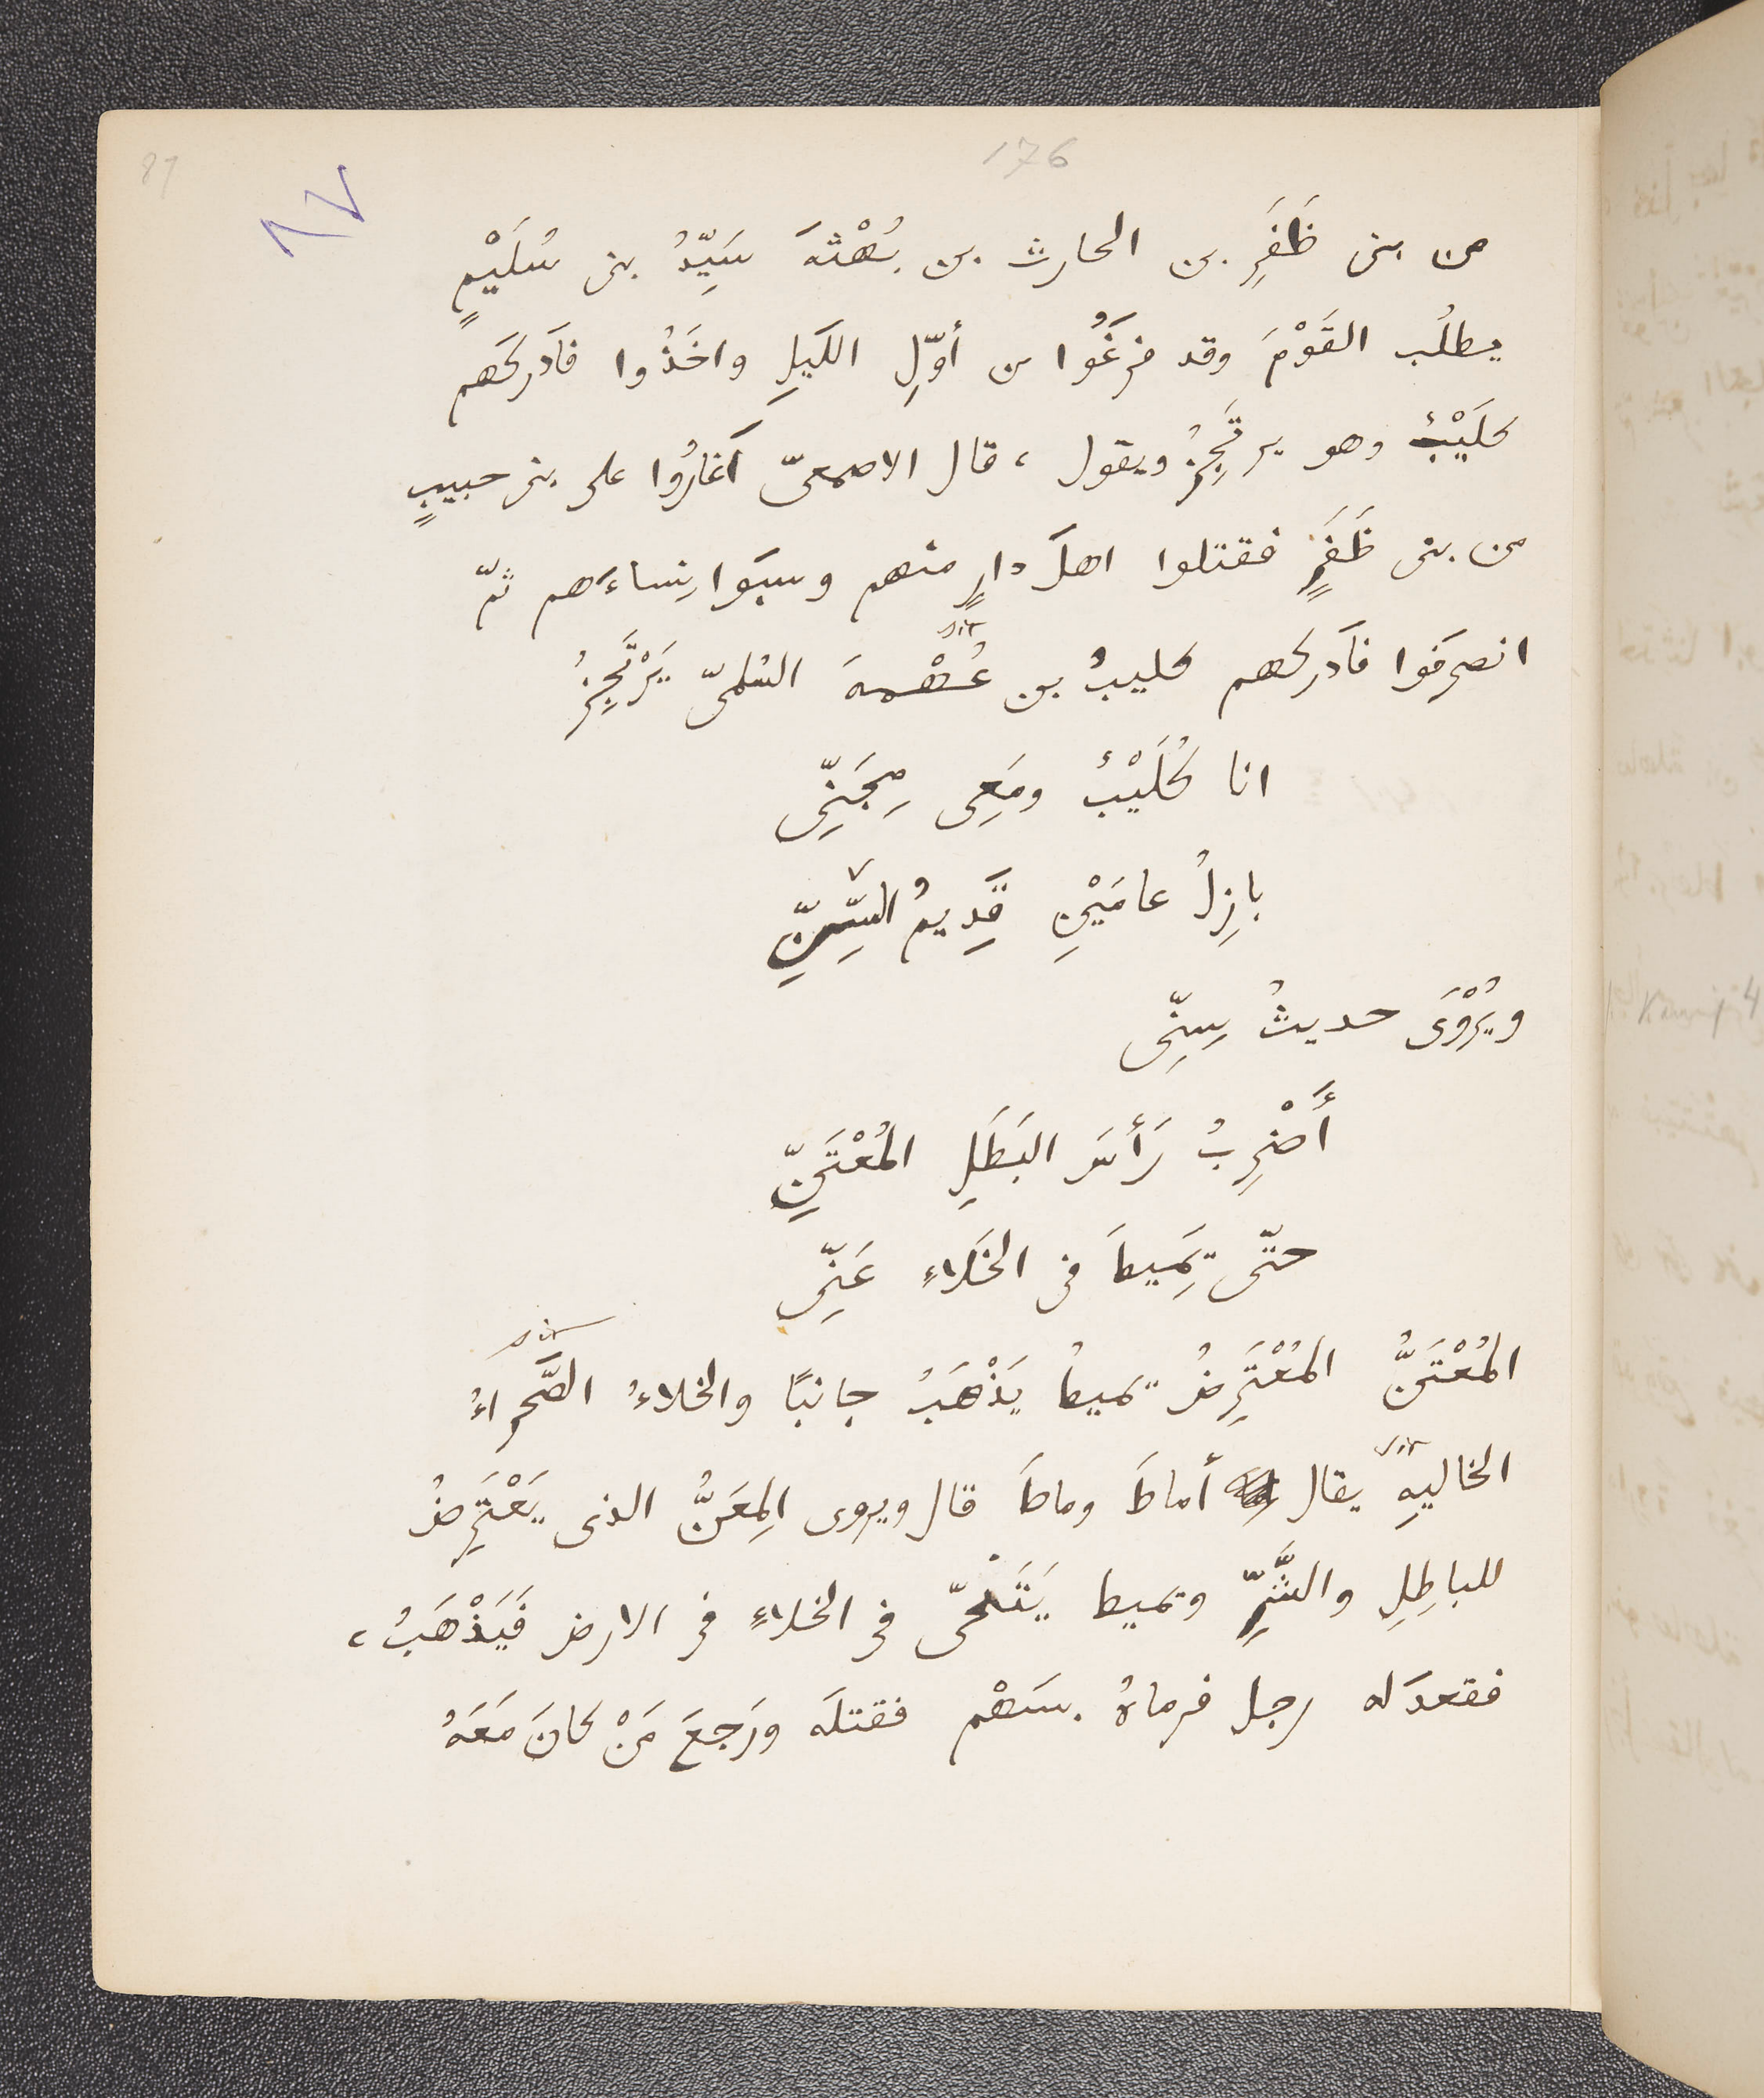 87
176
٨٧
من بنى ظَفَرِ بن الحارث بن بُهْثَهَ سَيِّدُ بنى سُلَيْمٍ
يطلُب القَوْمَ وقد فرَغُوا من أوّلِ اللَيلِ واخَذُوا فأَدركَهم
كلَيْبٌ وهو يرتَجِزُ ويقول ، قال الاصمعىّ أَغارُوا على بنى حبيبٍ
من بنى ظَفَرٍ فقتلوا اهلَ دارٍ منهم وسبَوا نِساءَهم ثمّ
انصرَفَوا فأَدركهم كليبُ بن عُهْمهَ السُلمىّ يَرْتَجِزُ
sic
انا كُلَيْبٌ ومَعِى مِجَنِّى
بازِلُ عامَيْنِ قَدِيمُ السِّنِّ
ويُرْوَى حديثُ سِنِّى
أَضْرِبُ رَأسَ البَطَلِ المُعْتَنِّ
حتّى تَمِيطَ فى الخَلاءِ عَنِّى
المُعْتَنُّ المُعْتَرِضُ تميطُ يَذْهَبُ جانبًا والخلاءُ الصَّحراءُ
sic
الخاليهِ يقال أماطَ وماطَ قال ويروى المِعَنُّ الذى يَعْتَرِضُ
sic
للباطِلِ والشَّرِّ وتميط يَتَنَحّى فى الخلاءِ فى الارض فَيَذْهَبُ ،
فقعدَ له رجل فرماهُ بسَهْم فقتلَه ورَجعَ مَنْ كانَ مَعَهُ